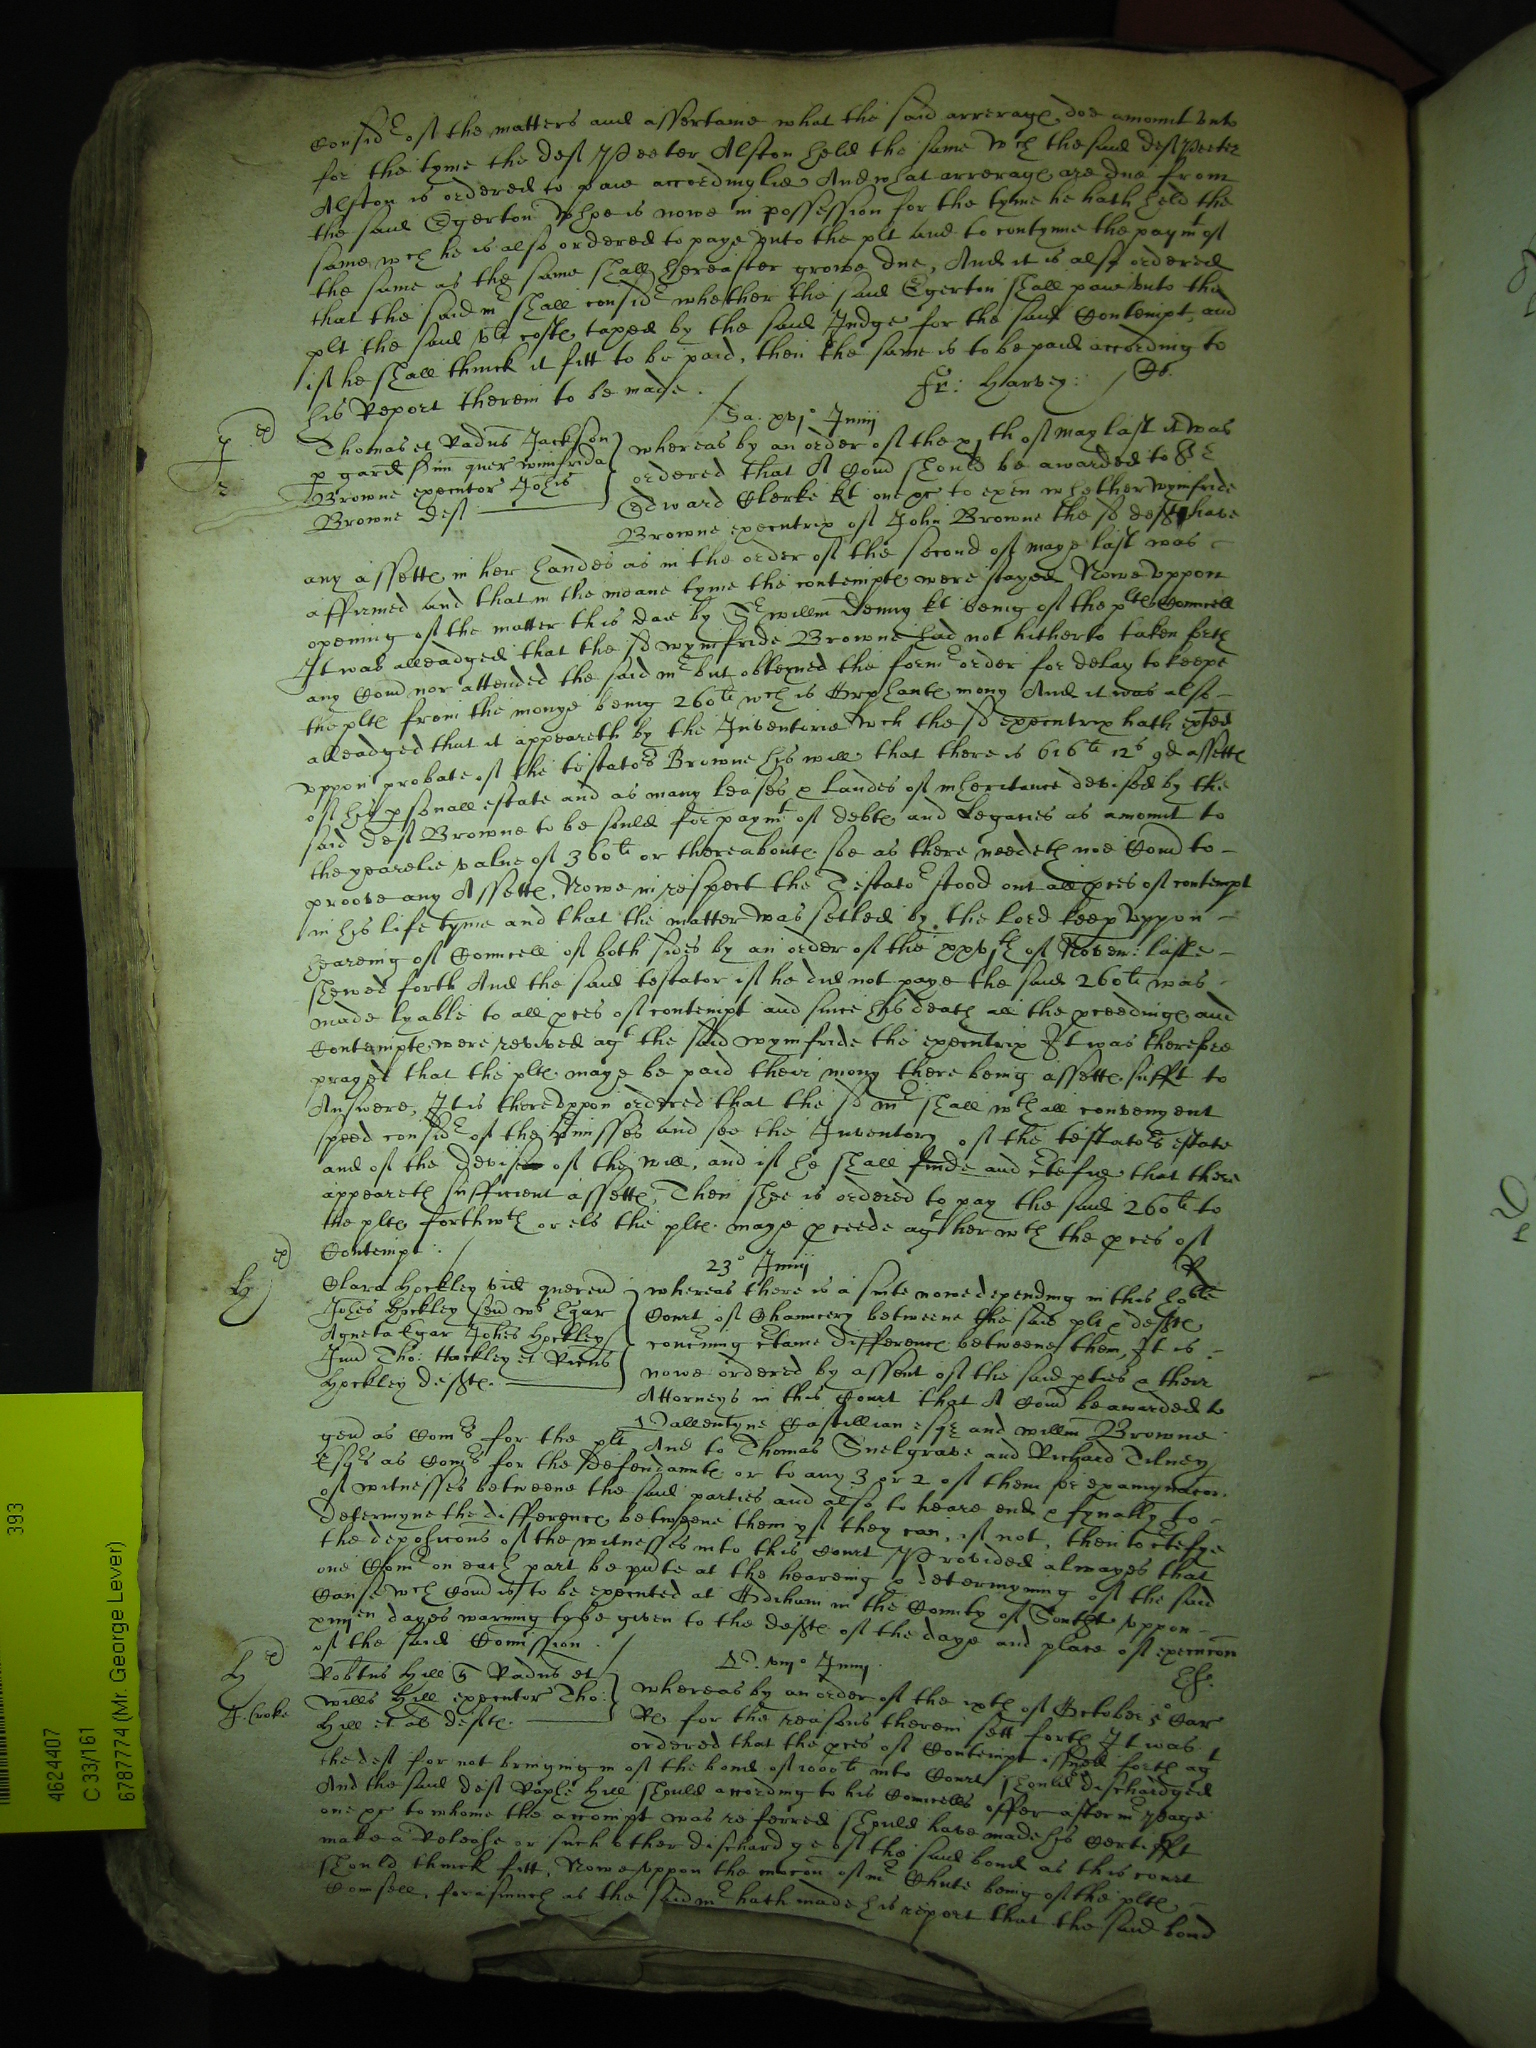 Consid of the matters and assertaine what the said arrerages doe amount unto
for the tyme the deft Peeter Alston held the same wch the said deft Peeter
Alston is ordered to paie accordinglie And what arrerages are due from
the said Egerton whoe is nowe in possession for the tyme he hath held the
same wch he is also ordered to paye unto the plt and to contynue the paymt of
the same as the same shall hereafter growe due, And it is also ordered
that the said mr shall consid whether the said Egerton shall paie unto the
plt the said vli costs taxed by the said Judge for the said Contempt, and
if he shall thinck it fitt to be paid, then the same is to be paid according to
his Report therein to be made.
Fr: Harvey:
Sa. xvjo Junij
Thomas et Radus Jackson
p gard suu quer winifrida
Browne executor Johis
Browne deft
whereas by an order of the xjth of may last it was
ordered that A Comn should be awarded to Sr
Edward Clerke kt one &c to exen whether wynifride
Browne executrix of John Browne the sd deft have
any assetts in her handes as in the order of the second of maye last was
affirmed and that in the meane tyme the contempts were stayed Nowe uppon
opening of the matter this daie by Sr willm Denny kt being of the plts Councell
It was alleadged that the sd wynifride Browne had not hitherto taken forth
any Comn nor attended the said mr but obteyned the form order for delay to keepe
the plts from the monye being 260li wch is Orphants mony And it was also
alleadged that it appeareth by the Inventorie wch the sd executrix hath exted
uppon probate of the testators Browne his will that there is 616li 12s 9d assetts
of his psonall estate and as many leases & landes of inheritance devised by the
said deft Browne to be sould for paymt of debts and Legacies as amount to
the yearelie value of 360li or thereabouts soe as there needeth noe Comn to
proove any Assetts, Nowe in respect the Testator stood out all pces of contempt
in his life tyme and that the matter was setled by the lord keep uppon
heareing of Councell of both sides by an order of the xxvjth of Novem: laste
shewed forth And the said testator if he did not paye the said 260li was
made lyable to all pces of contempt and since his death all the pceedings and
Contempts were revived agt the said wynifride the executrix It was therefore
prayed that the plts maye be paid their mony there being assetts sufft to
Answere, It is thereuppon ordered that the sd mr shall wth all convenyent
speed consid of the pmisses and see the Inventory of the testators estate
and of the devise of the will, and if he shall finde and ctefie that there
appeareth sufficient assetts, Then shee is ordered to pay the said 260li to
the plts forthwth or els the plts maye pceede agt her wth the pces of
Contempt.
R
23o Junij
Clara Hockley vid querend
Johes Hockley sen ws Egar
Agneta Egar Johis Hockley
Jun Tho: Hockley et Ricus
Hockley defts.
whereas there is a suite nowe depending in this hoble
Court of Chancery betweene the said plt & defts
concning ctaine differences betweene them, It is
nowe ordered by assent of the said pties & their
Attorneys in this Court that A Comn be awarded to
Vallentyne Castillian esqr and willm Browne
gen as Comrs for the plt And to Thomas Snelgrave and Richard Tilney
Esqrs as Comrs for the Defendaunts or to any 3 or 2 of them for examynacon
of witnesses betweene the said parties and also to heare end & fynally to
determyne the differences betweene them yf they can, if not, then to ctefye
the deposicons of the witnesses into this Court Provided alwayes that
one Comr on each part be pnte at the heareing & determyning of the said
Cause wch Comn is to be executed at Odiham in the County of Southt uppon
xiiijen dayes warning to be given to the defts of the daye and place of execucon
of the said Comission.
V. viijo Junij
Robtus Hill Radus et
Willus Hill executor Tho:
Hill et al defts.
J. Croke
whereas by an order of the ixth of October 5o Car
Rs for the reasons therein sett forth It was
ordered that the pces of Contempt issued forth agt
the deft for not bringing in of the bond of 1000li into Court should be dischardged
And the said deft Raphe Hill should according to his Councells offer after mr Page
one &c to whome the accompt was referred should have made his Certifft
make a Release or such other dischardge of the said bond as this court
should thinck fitt, Nowe uppon the mocon of mr Chute being of the plts
Counsell, forasmuch as the said mr hath made his report that the said bond
393
4624407
C 33/161
6787774 (Mr. George Lever)